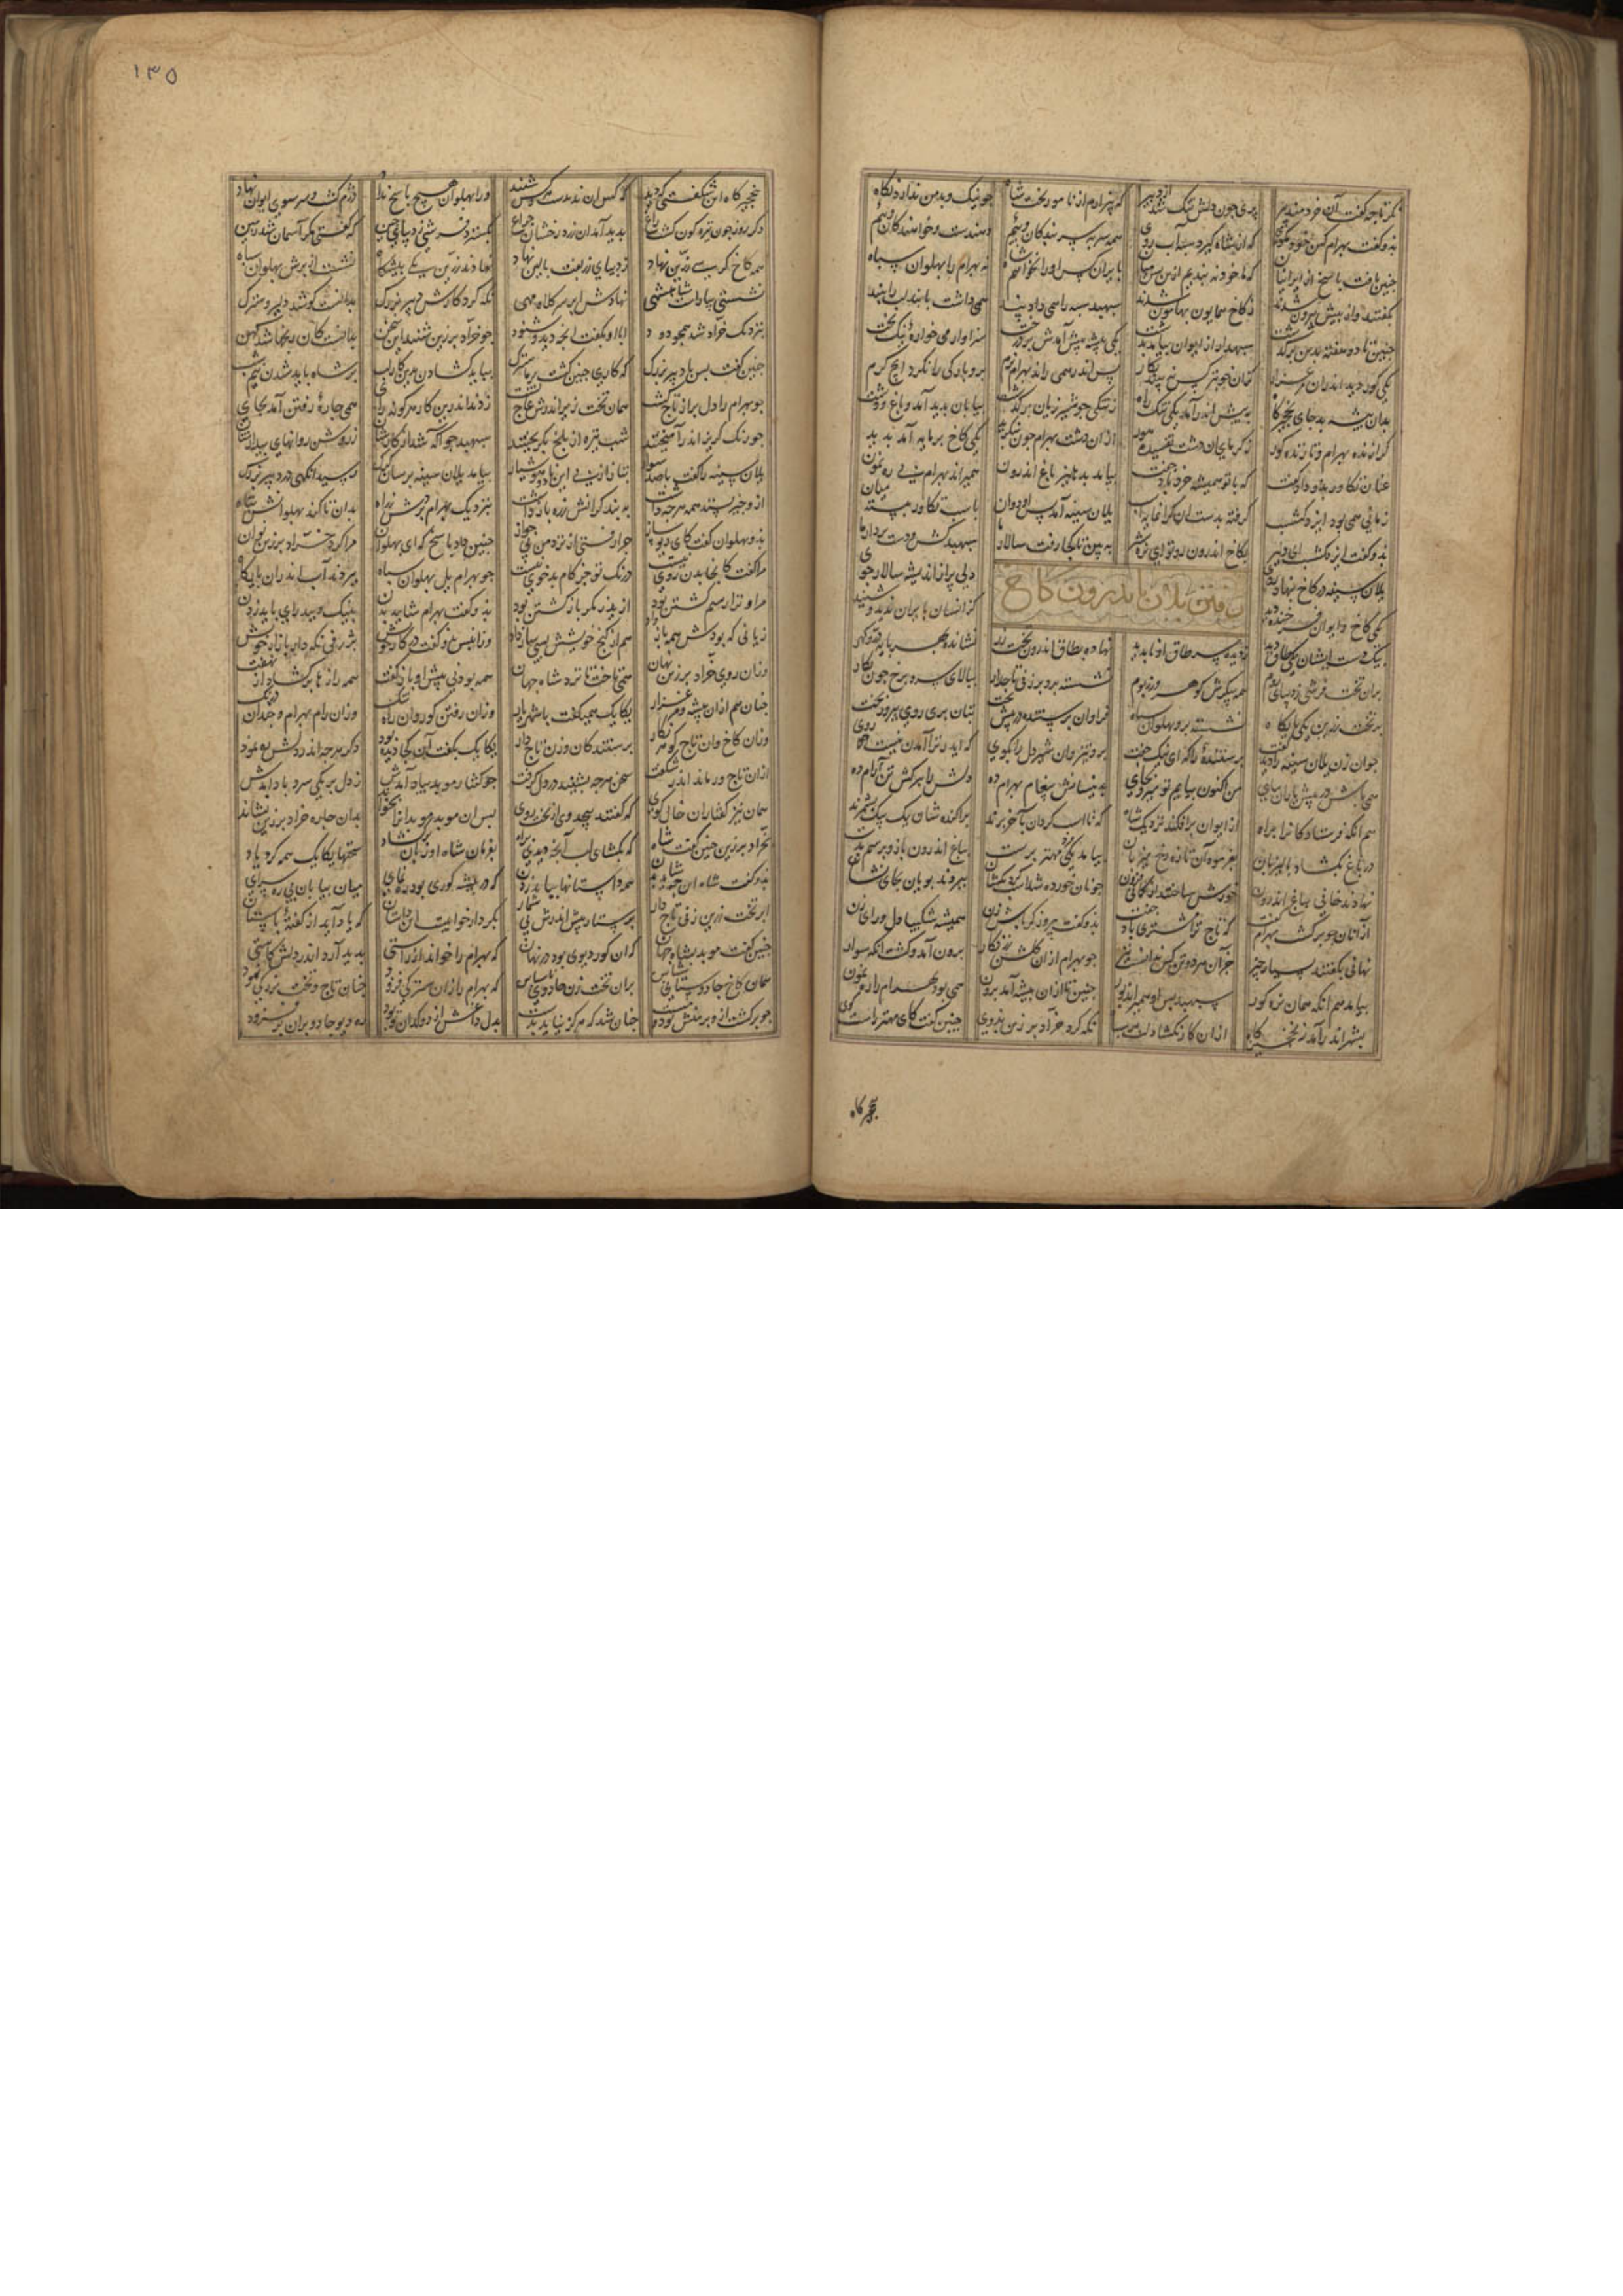 ۱۳۵
نگر تا چه گفت آن خردمند پیر پری چون دلش تنگ شد از دبیر که بیزارم از نامور تخت شاه چو نیک و بد من ندارد نگاه
بذو گفت بهرام کین خود مگوی که از شاه گیرد سپاه آب روی همه سر بسر بندگان وییم دهندست و خواهندگان وییم
چنین یافت پاسخ از ایرانیان که ما خود نبندیم ازین پس میان بایران کس او را نخواهیم شاه نه بهرام را پهلوان سپاه
بگفتند و از پیش بیرون شدند ز کاخ همایون بهامون شدند سپهبد سپه را همی داد پند همی داشت با پند لب را ببند
چنین تا دو هفته بدین برگذشت سپهبد از ایوان بیامد بدشت یکی بیشه پیش آمدش پر درخت سزاوار می خواره نیک بخت
یکی گور دید اندران مرغزار کزان خوبتر کس نبیند نگار پس اندر همی راند بهرام نرم برو بارگی را نکرد ایچ گرم
بدان بیشه بد جای نخچیرگاه به پیش اندر آمد یکی تنگ راه ز تنگی چو شیر ژیان برگذشت بیابان پدید آمد و باغ و دشت
گرازنده بهرام و تازنده گور ز گرمای آن دشت تفسیده هور ازان دشت بهرام چون بنگرید یکی کاخ پرمایه آمد پدید
عنان تکاور بذو داد و گفت که با تو همیشه خرد باد جفت پیاده بدهلیز باغ اندرون همیراند بهرام بی رهنمون
زمانی همی بود ایزد گشسب گرفته بدست آن گرانمایه اسب یلان سینه آمد پس او دوان باسب تکاور ببسته میان
بذو گفت ایزد گشسب ای دلیر بکاخ اندرون رو تو ای نره شیر ببین تا کجا رفت سالار ما سپهبد کش و دست بردار ما
یلان سینه در کاخ بنهاد روی دلی پر از اندیشه سالار جوی
رفتن یلان باندرون کاخ
یکی کاخ و ایوان فرخنده دید کز انسان بایران ندید و شنید
بیک دست ایشان یکی طاق دید ز دیده سر طاق او ناپدید نهاده بطاق اندرون تخت زر نشانده بهر پایه در گهر
بران تخت فرشی ز دیبای روم همه پیکرش گوهر و زر بوم نشسته برو بر زنی تاجدار ببالای سرو و برخ چون نگار
بر تخت زرین یکی پایگاه نشسته برو پهلوان سپاه فراوان پرستنده در پیش تخت بتان پری روی پیروز بخت
جوان زن یلان سینه را دید گفت پرستنده را کای نیک جفت برو تیز و ان شیر دل را بگوی که ایدر ترا آمدن نیست روی
همی باش در پیش یاران بپای من اکنون بیایم تو بجای بدینسانش پیغام بهرام ده دلش را آرام ده
هم انگه فرستادگان را براه از ایوان برافکند نزدیک شاه که تا اسب گردان بآخر برند پراکنده شان یک بیک بشمرند
در باغ بگشاد پالیزبان بفرموده آن تازه رخ میزبان بیامد یکی مهتر برست بباغ اندرون باژ و برسم بدست
نهادند خانی بباغ اندرون خورش ساختند از گمانی فزون چو نان خورده شد اسب گردنکشان ببردند پویان بجای نشان
ازانان چو برگشت بهرام گفت که تاج ترا مشتری باد جفت بذو گفت پیروزگر باش زن همیشه شکیبا دل و رای زن
نهانی بگفتند بسیار چیز جز آن هر دو تن کس ندانست نیز چو بهرام ازان گلشن زرنگار برون آمد و گشت انگه سوار
بیامد هم انگه همان نره گور سپهبد پس او همیراند بور چنین تا ازان بیشه آمد برون همی بود بهرام را رهنمون
بشهر اندر آمد ز نخچیرگاه ازان کار نگشاد لب نگه کرد خراد برزین بذوی چنین گفت کای مهتر راست گوی
نخچیرگاه
نخچیرگاه این شگفتی که دید که کس ان ندیدست و کس ورا پهلوان هیچ پاسخ نداد دژم گشت و سر سوی ایوان نهاد
دگر روز چون تیره گون گشت راغ پدید آمد ان زرد رخشان چراغ بگسترد فرشی ز دیبای چین که گفتی مگر آسمان شد زمین
همه کاخ کرسی زرین نهاد ز دیبای زربفت بالین نهاد نهادند زرین یکی پیشگاه نشست از برش پهلوان سپاه
نشستی بیاراست شاهنشهی نهادش ابر سر کلاه مهی نگه کرد کارش دبیر بزرگ بدانست کو شد دلیر و سترگ
بنزدیک خراد شد همچو دود ابا او بگفت انچه دید و شنود چو خراد برزین شنید این سخن بدانست کان رنجها شد کهن
چنین گفت پس با دبیر بزرگ که کاری چنین گشت سترگ نباید گشادن بدین کار لب بر شاه باید شدن نیم شب
چو بهرام را دل پر از تاج گشت همان تخت زیر اندرش عاج گشت زدند اندرین کار هر گونه رای همی چاره رفتن آمد بجای
چو رنگ گریز اندر آمیختند شب تیره از بلخ بگریختند سپهبد چو آگه شد از کارشان ز روشن روانهای بیدارشان
یلان سینه را گفت با صد سوار بتاز از پی این ناهوشیار بیامد یلان سینه برسان گرگ رسید انگهی در دبیر بزرگ
ازو چیز بستند همه هرچه داشت به بند گرانش زره بازداشت بنزدیک بهرام بردش ز راه بدان تا کند پهلوانش تباه
بذو پهلوان گفت کای دیوساز چرا رفتی از نزد من بی جواز چنین داد پاسخ که ای پهلوان مرا کرد خراد برزین نوان
مرا گفت کاینجا بدن روی نیست درنگ تو جز کام بدخوی نیست چو بهرام یل پهلوان سپاه ببردند آب اندران بارگاه
مرا و ترا بیم کشتن بود از ایدر مگر بازگشتن بود بذو گفت بهرام شاید بدن بنیک و ببد رای باید زدن
زیانی که بودش همه باز داد هم از گنج خویشش بسی ساز داد وزان پس بذو گفت در کار خویش بژرفی نگه دار بازار خویش
وزان روی خراد برزین نهان همی تاخت تا نزد شاه جهان همه بودنی پیش او باز گفت همه رازها برگشاد از نهفت
چنان هم ازان بیشه و مرغزار یکایک همیگفت با شهریار وزان رفتن گور و ان راه تنگ وزان رام بهرام و چندان درنگ
وزان کاخ وان تاج گوهر نگار پرستندگان و زن تاج دار یکایک بگفت آن کجا دیده بود دگر هرچه اندر دلش بغنود
ازان تاجور ماند اندر شگفت سخن هرچه بشنید در دل گرفت چو گفتار موبد بیاد آمدش ز دل بر یکی سرد باد آمدش
همان نیز گفتار ان خال گوی که گفتند پیچد وی از تخت روی پس ان موبد موبدانرا بخواند بدان خراد برزین نشاند
بخراد برزین چنین گفت شاه که بگشای لب انچه دیدی براه بفرمان شاه او زبان برگشاد سخنها یکایک همه کرد یاد
بذو گفت شاه این چه شاید بدن همه داستانها بباید زدن که در بیشه گوری بود رهنمای میان بیابان بی ره سرای
ابر تخت زرین زنی تاج دار پرستار پیش اندرش بی شمار بکردار خوابست این داستان که یاد آید از گفته باستان
چنین گفت موبد بشاه جهان که ان گور دیوی بود در نهان که بهرام را خواند از راستی پدید آرد اندر دلش کاستی
همان کاخ جادوستانی شناس بران تخت زن جادوی ناسپاس که بهرام را زان سترگی فزود چنان تاج و تخت بزرگی نمود
چو برگشت ازو پرمنش بود و مست چنان شد که هرگز نیاید بدست بدل داغش از دوکدان تو بود ره دیو جادو بران بر فزود